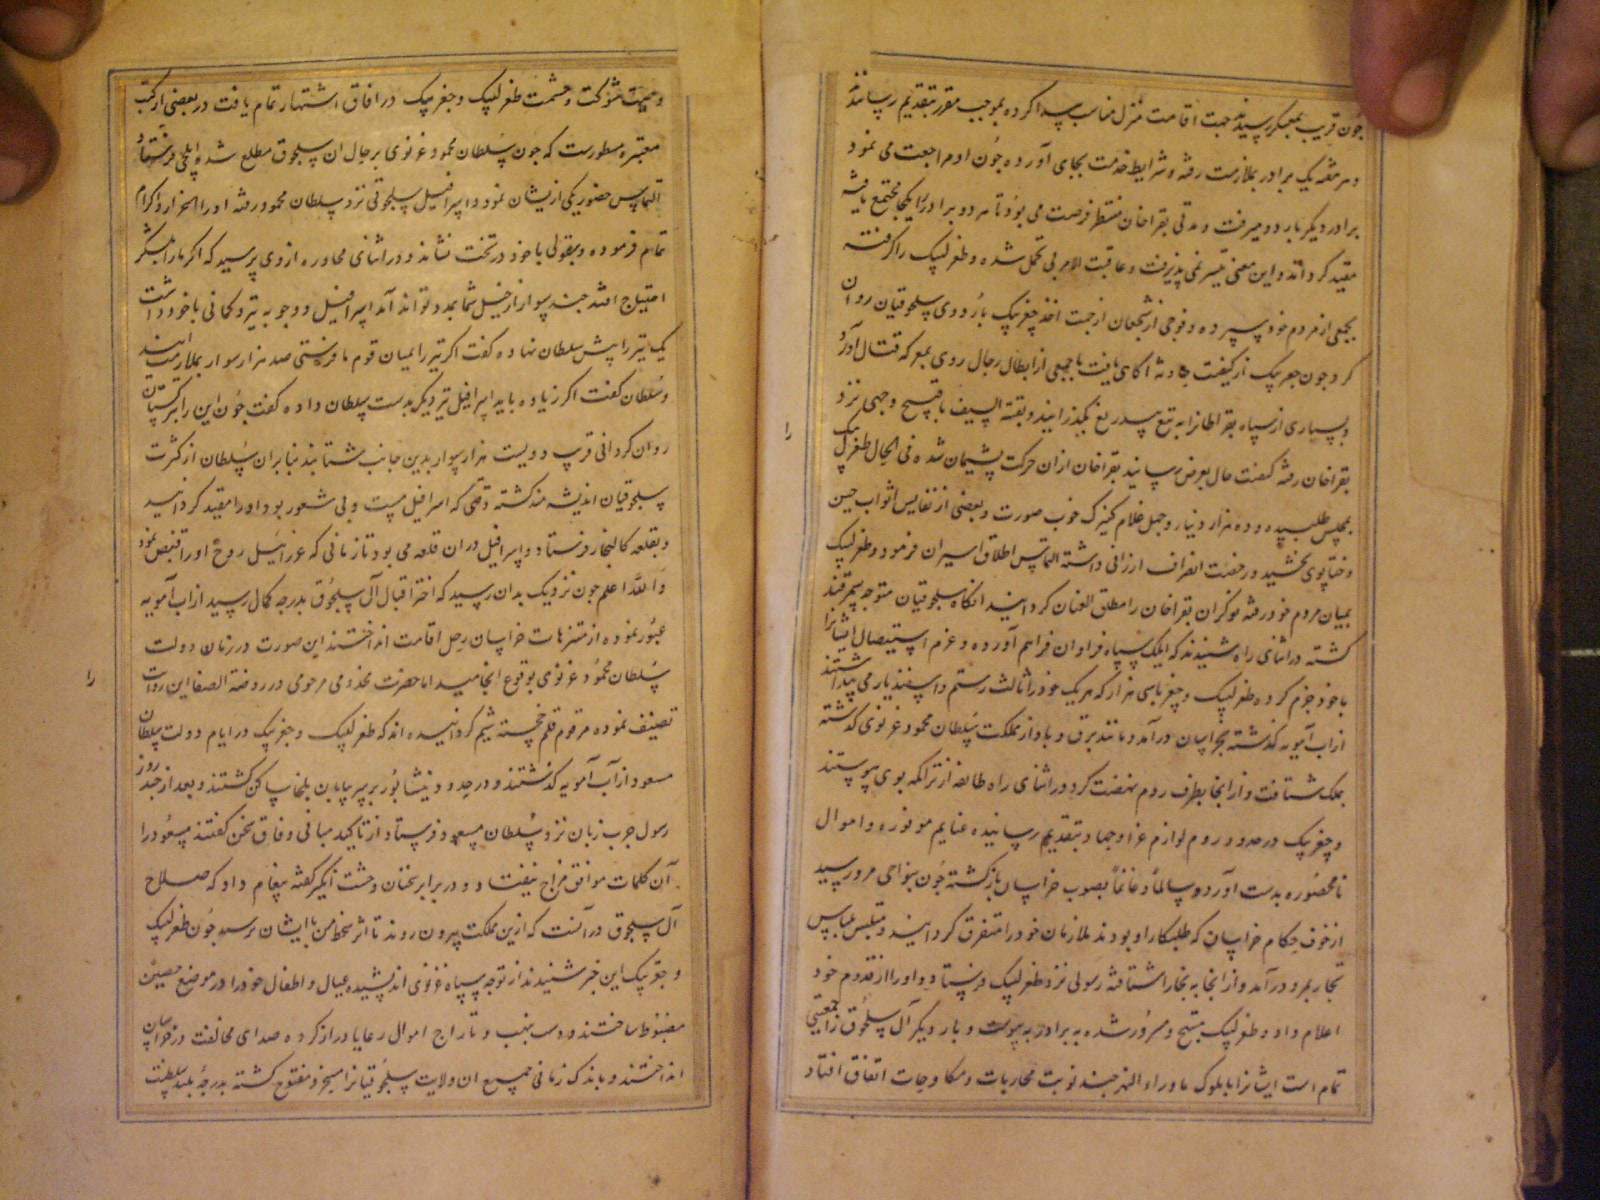 چون قریب بمعسکر رسیدند جهت اقامت منزل مناسب پیدا کرده بموجب مقرر بتقدیم رسانیدند
و هر هفته یک برادر بملازمت رفته و شرایط خدمت بجای آورده چون او مراجعت می نمود
برادر دیگر باردو میرفت و مدتی بقراخان منتظر فرصت می بود تا هر دو برادر را یکجا مجتمع یافته
مقید گرداند و این معنی تیسر نمی پذیرفت و عاقبت الامر بی تحمل شده و طغرلبیک را گرفته
بجمعی از مردم خود سپرده و فوجی از شجعان از جهت اخذ جغربیک باردوی سلجوقیان روان
کرد چون جغربیک از کیفیت حادثه آگاهی یافت با جمعی از ابطال رجال روی بمعرکه قتال آورد
و بسیاری از سپاه بقراخان را به تیغ بیدریغ بگذرانید و بقیة السیف باقبح وجهی نزد
بقراخان رفته کیفیت حال بعرض رسانید بقراخان از ان حرکت پشیمان شده فی الحال طغرلبیک
بمجلس طلبیده و ده هزار دینار و چهل غلام کنیزک خوب صورت و بعضی از نفایس اثواب چین
و ختا بوی بخشید و رخصت انصراف ارزانی داشته التماس اطلاق اسیران فرمود و طغرلبیک
بمیان مردم خود رفته نوکران بقراخان را مطلق العنان گردانید انگاه سلجوقیان متوجه سمرقند
گشته در اثنای راه شنیدند که ایلک سپاه فراوان فراهم آورده و عزم استیصال ایشانرا
با خود جزم کرده طغرلبیک و جغر باسی هزار که هر یک خود را ثالث رستم و اسفندیار می پنداشتند
از اب آمویه گذشته بخراسان درآمد و مانند برق و باد از مملکت سلطان محمود غزنوی گذشته
بملک شتافت و از انجا بطرف روم نهضت کرد در اثنای راه طائفه از تراکمه بوی پیوستند
و جغربیک در حدود روم لوازم غزا و جهاد بتقدیم رسانیده غنایم موفوره و اموال
نامحصوره بدست آورد و سالماً و غانماً بصوب خراسان بازگشته چون بنواحی مرو رسید
از خوف حکام خراسان که طلبکار او بودند ملازمان خود را متفرق گردانید و متلبس بلباس
تجار بمرو درآمد و از انجا به بخارا شتافته رسولی نزد طغرلبیک فرستاد و او را از قدوم خود
اعلام داد و طغرلبیک مبتهج و مسرور شده به برادر به پیوست و بار دیگر آل سلجوق را جمعیتی
تمام است ایشانرا با ملوک ماوراء النهر چند نوبت محاربات و مکاوحات اتفاق افتاد
و صیت شوکت و حشمت طغرلبیک و جغربیک در افاق اشتهار تمام یافت در بعضی از کتب
معتبره مسطورست که چون سلطان محمود غزنوی بر حال ان سلجوق مطلع شده ایلچی فرستاد و
التماس حضور یکی از ایشان نمود و اسرافیل سلجوقی نزد سلطان محمود رفته او را اعزاز و اکرام
تمام فرموده و بقولی با خود در تخت نشاند و در اثنای محاوره از وی پرسید که اگر ما را بلشکر
احتیاج افتد چند سوار از خیل شما بمدد تواند آمد اسرافیل دو چوبه تیر و کمانی با خود داشت
یک تیر را پیش سلطان نهاده گفت اگر تیر را بمیان قوم ما فرستی صد هزار سوار بملازمت آیند
و سلطان گفت اگر زیاده باید اسرافیل تیر دیگر بدست سلطان داده گفت چون این را بترکستان
روان گردانی قرب دویست هزار سوار بدین جانب شتابند بنابران سلطان از کثرت
سلجوقیان اندیشه مند گشته وقتی که اسرافیل مست و بی شعور بود او را مقید گردانید
و بقلعه کالنجار فرستاد و اسرافیل در ان قلعه می بود تا زمانی که عزرائیل روح او را قبض نمود
و الله اعلم چون نزدیک بدان رسید که اختر اقبال آل سلجوق بدرجه کمال رسید از اب آمویه
عبور نموده از متنزهات خراسان رحل اقامت انداختند این صورت در زمان دولت
سلطان محمود غزنوی بوقوع انجامید اما حضرت مخدومی مرحومی در روضة الصفا این روایت
تصنیف نموده مرقوم قلم خجسته شیم گردانیده اند که طغرلبیک و جغربیک در ایام دولت سلطان
مسعود از آب آمویه گذشتند و در حدود نیشابور بر سر بیابان بلخان ساکن گشتند و بعد از چند روز
رسول چرب زبان نزد سلطان مسعود فرستاد از تاکید مبانی وفاق سخن گفتند مسعود را
آن کلمات موافق مزاج نیفتاد و در برابر سخنان وحشت انگیز گفته پیغام داد که صلاح
آل سلجوق در آنست که ازین مملکت بیرون روند تا اثر سخط من بایشان نرسد چون طغرلبیک
و جغربیک این خبر شنیدند از توجه سپاه غزنوی اندیشیده عیال و اطفال خود را در موضع حصین
مضبوط ساختند و دست بنهب و تاراج اموال رعایا دراز کرده صدای مخالفت در خراسان
انداختند و باندک زمانی جمیع ان ولایت سلجوقیانرا مسخر و مفتوح گشته بدرجه بلند سلطنت